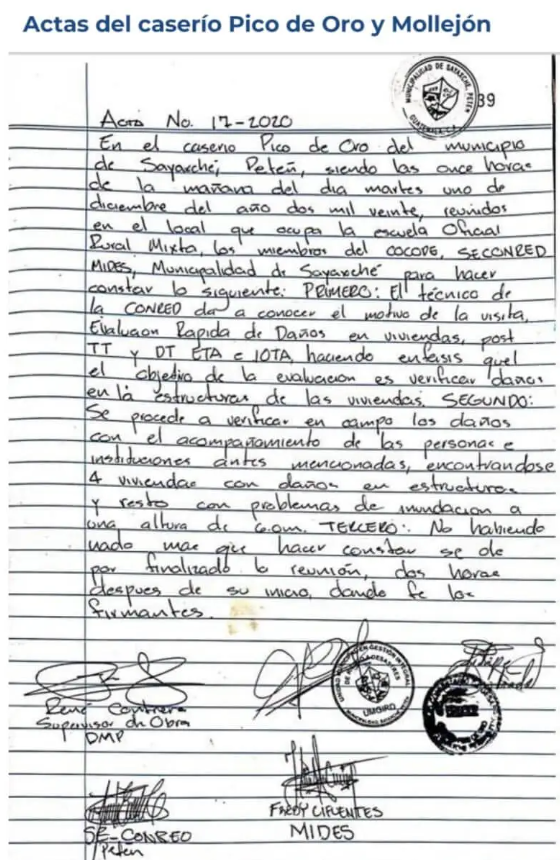 Actas del caserío Pico de Oro y Mollejón
MUNICIPALIDAD DE SAYAXCHE, PETEN
GUATEMALA, C.A.
39
Acta No. 17-2020
En el caserio Pico de Oro del municipio
de Sayaxché, Petén, siendo las once horas
de la mañana del dia martes uno de
diciembre del año dos mil veinte, reunidos
en el local que ocupa la escuela Oficial
Rural Mixta, los miembros del COCODE, SECONRED
MIDES, Municipalidad de Sayaxché para hacer
constar lo siguiente: PRIMERO: El técnico de
la CONRED da a conocer el motivo de la visita,
Evaluacion Rapida de Daños en viviendas, post
TT y DT ETA e IOTA, haciendo enfasis quel
el objetivo de la evaluacion es verificar daños
en la estructuras de las viviendas. SEGUNDO:
Se procede a verificar en campo los daños
con el acompañamiento de las personas e
instituciones antes mencionadas, encontrandose
4 viviendas con daños en estructuras
y resto con problemas de inundacion a
una altura de 6.0m. TERCERO: No habiendo
nada mas que hacer constar se da
por finalizado la reunión, dos horas
despues de su inicio, dando fe los
firmantes.
René Contreras
Supervisor de Obra
DMP
UMGIRD
FREDY CIFUENTES
MIDES
SE-CONRED
Petén